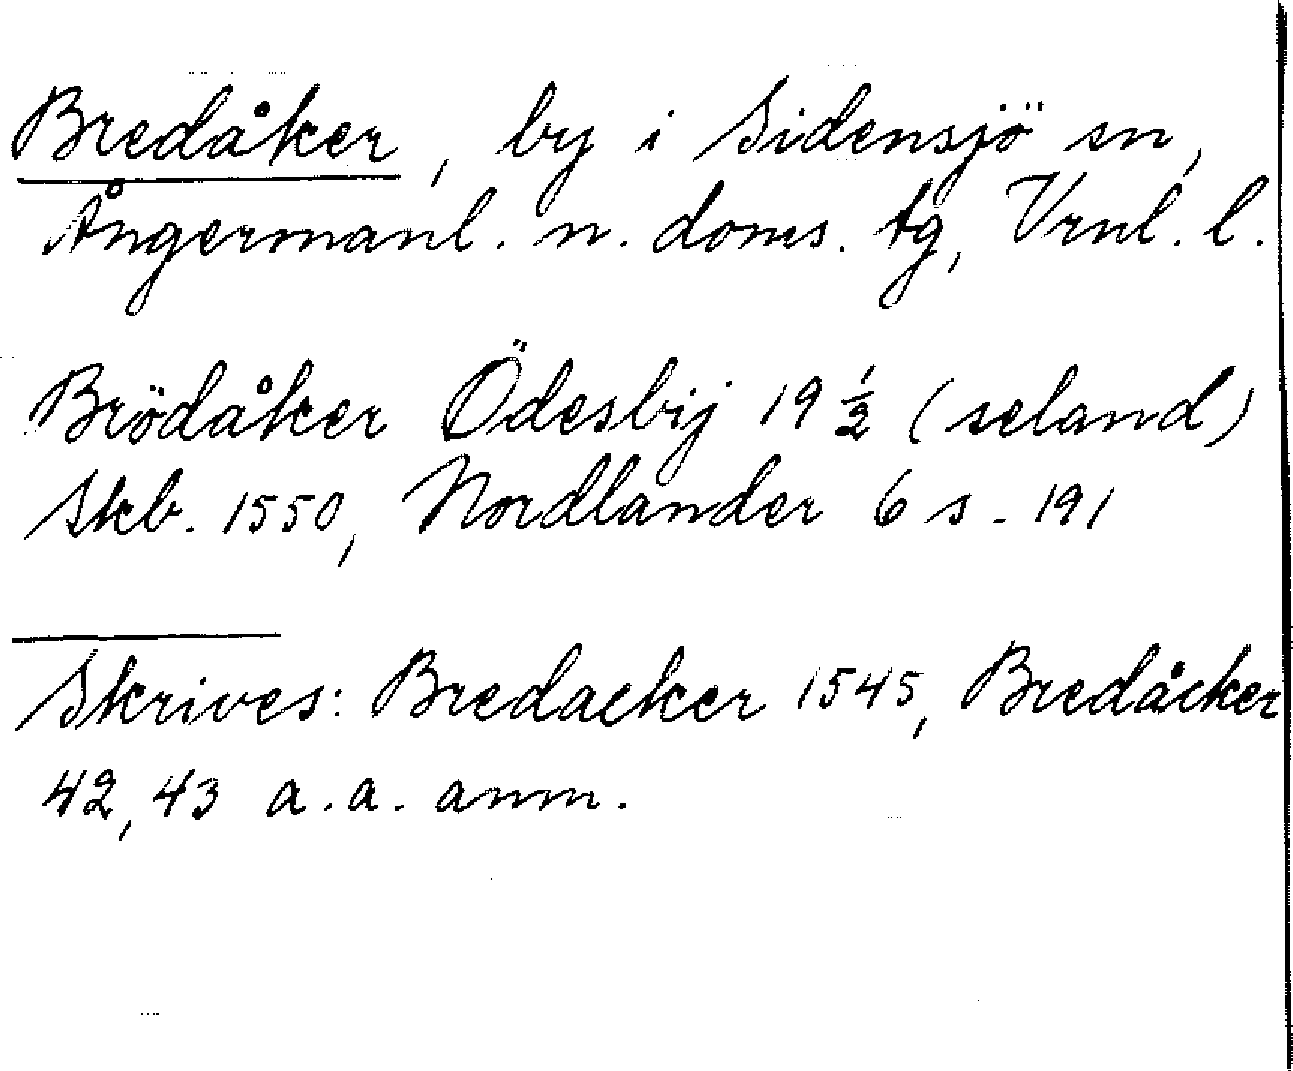 Bredåker, by i Sidensjö sn,
Ångermanl. n. doms. tg, Vrnl. l.
Brödåker Ödesbij 19 ½ (seland)
Skb. 1550, Nordlander 6 s. 191
Skrives: Bredacker 1545, Bredåcker
42, 43 a. a. anm.